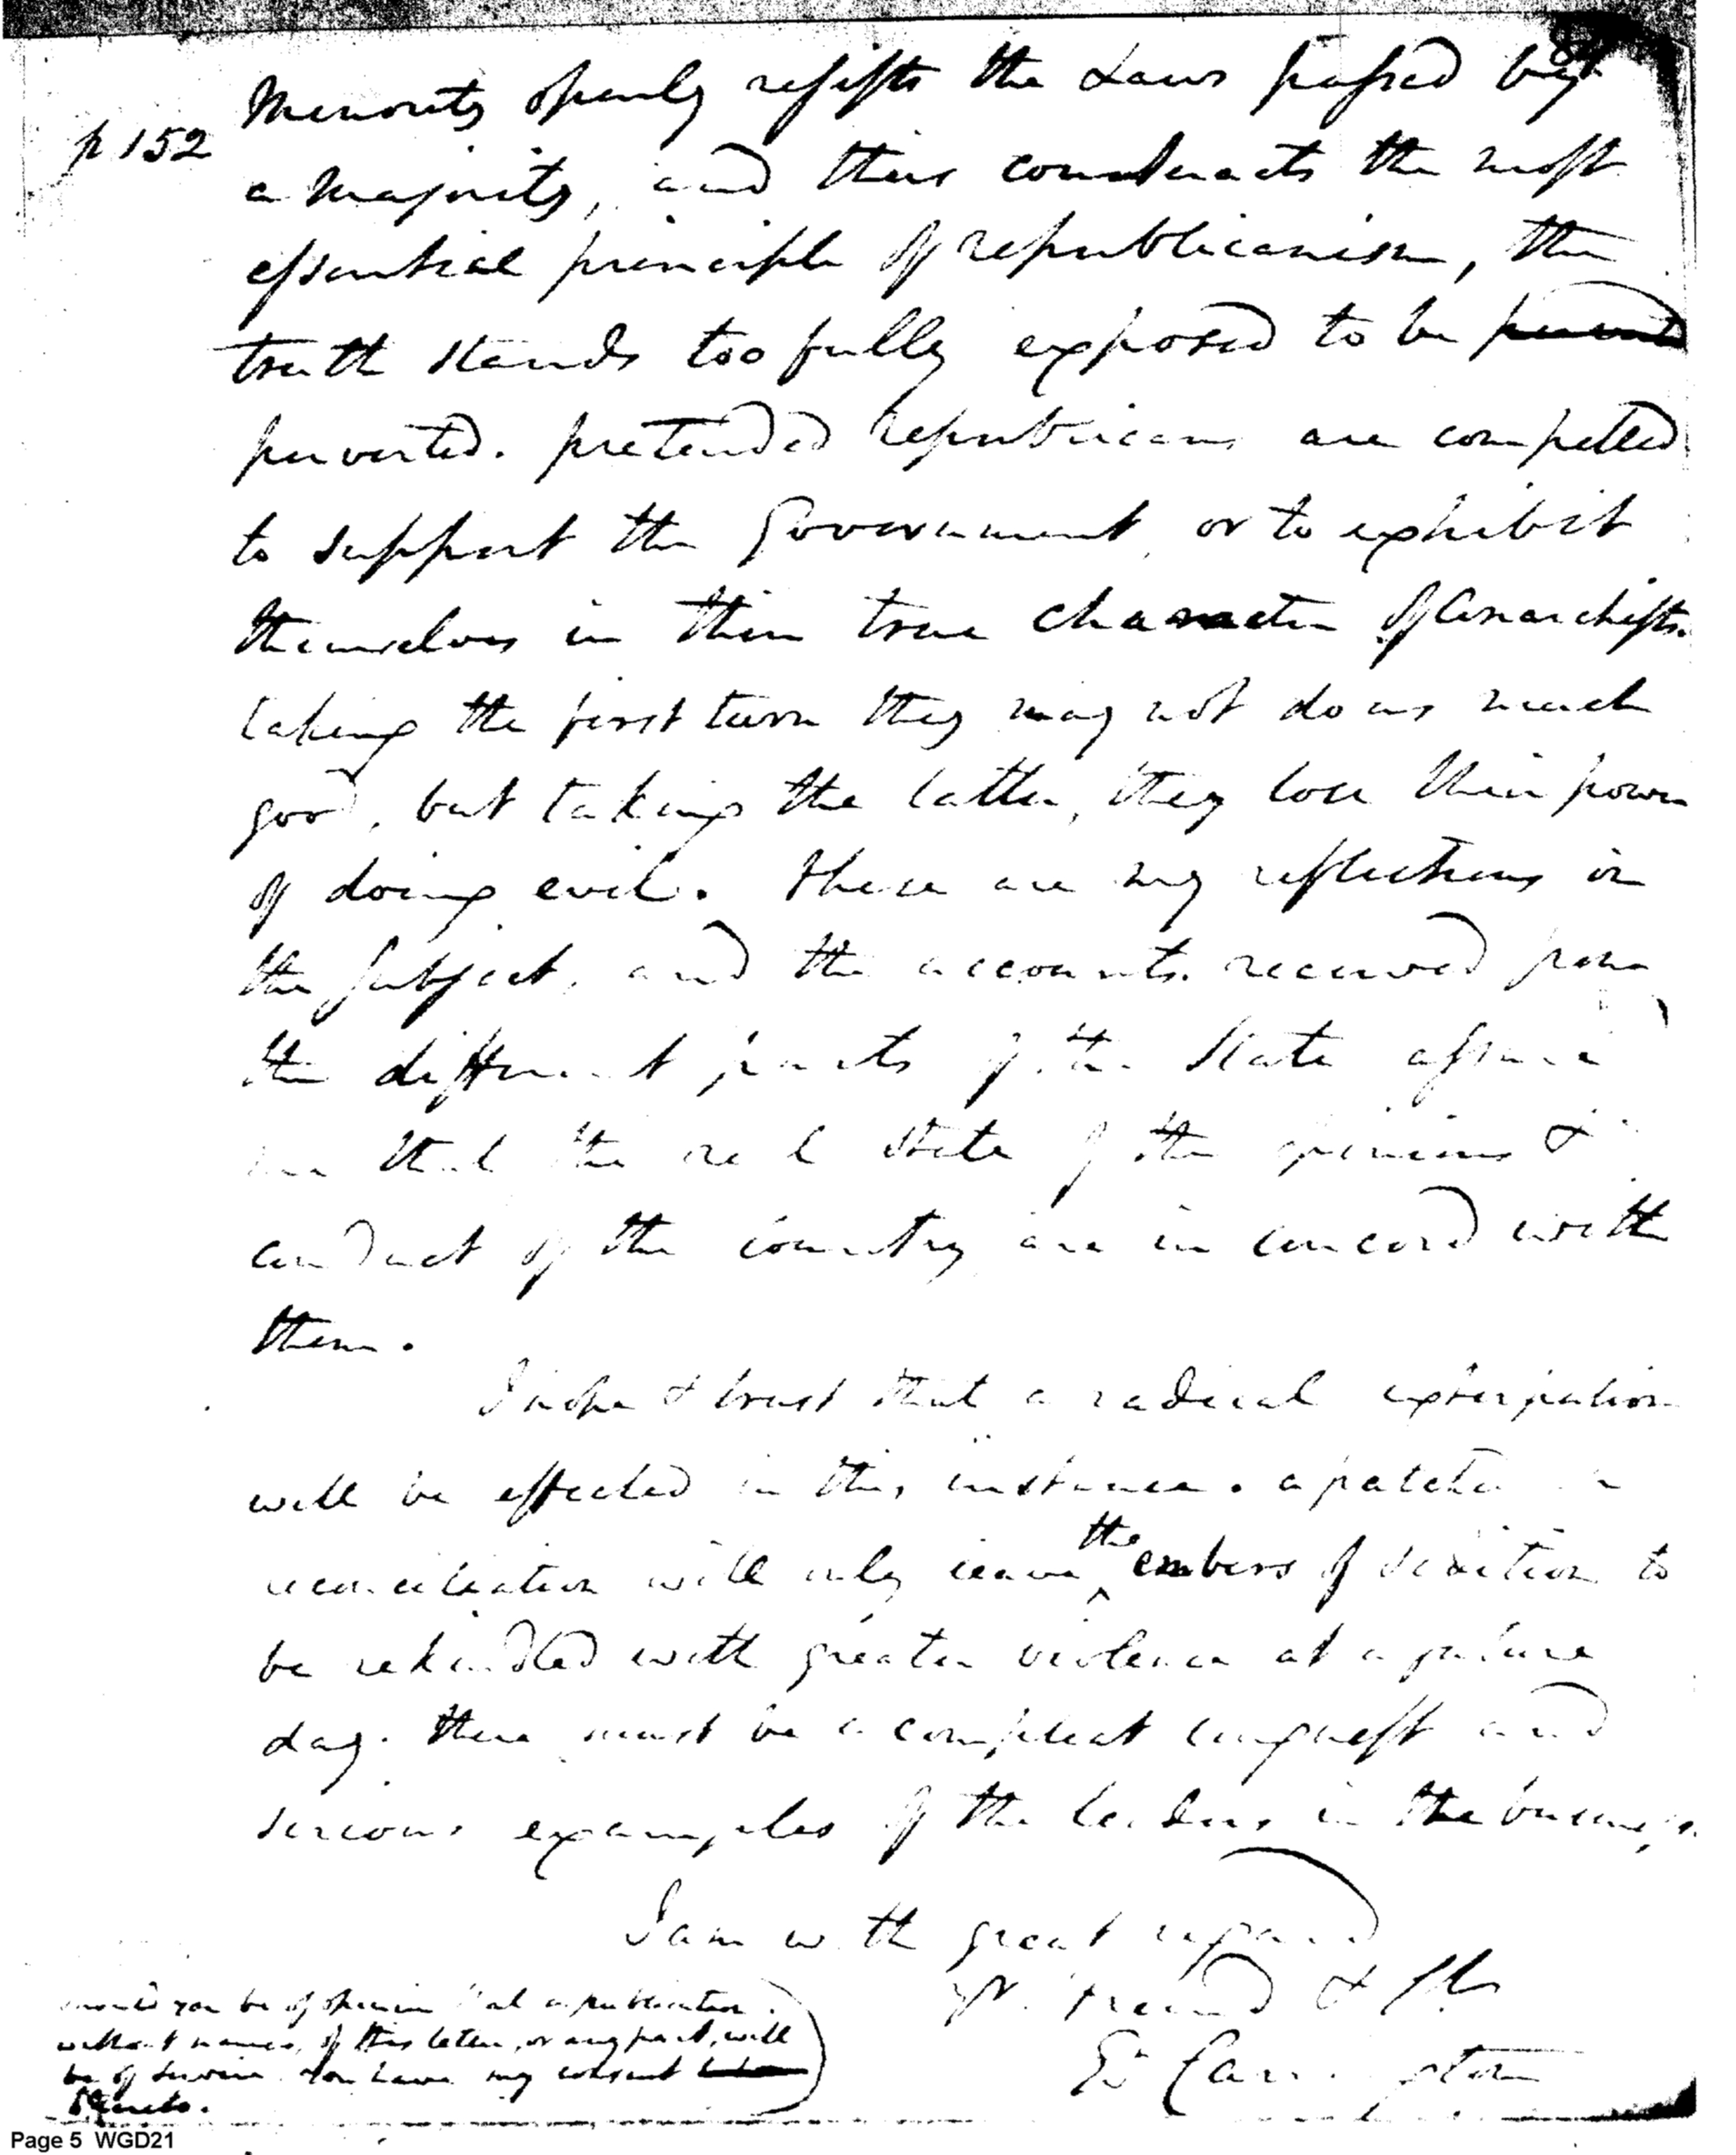 p 152
Minority openly resists the Laws passed by
a Majority, and thus counteracts the most
essential principle of republicanism, the
truth stands too fully exposed to be
perverted. pretended republicans are compelled
to support the Government, or to exhibit
themselves in their true character of Anarchists.
taking the first turn they may not do us much
good, but taking the latter, they lose their power
of doing evil. these are my reflections on
the subject, and the accounts received from
the different parts of the State assure
me that the real state of the opinions &
conduct of the country are in concord with
them.
I hope & trust that a radical extirpation
will be effected in this instance. a patched
reconciliation will only leave the embers of sedition to
be rekindled with greater violence at a future
day. there must be a compleat conquest and
serious examples of the leaders in the business.
I am with great regard
Yr. friend &
Ed Carrington
should you be of opinion that a publication
without names, of this letter, or any part, will
be of service you have my consent
thereto.
Page 5 WGD21